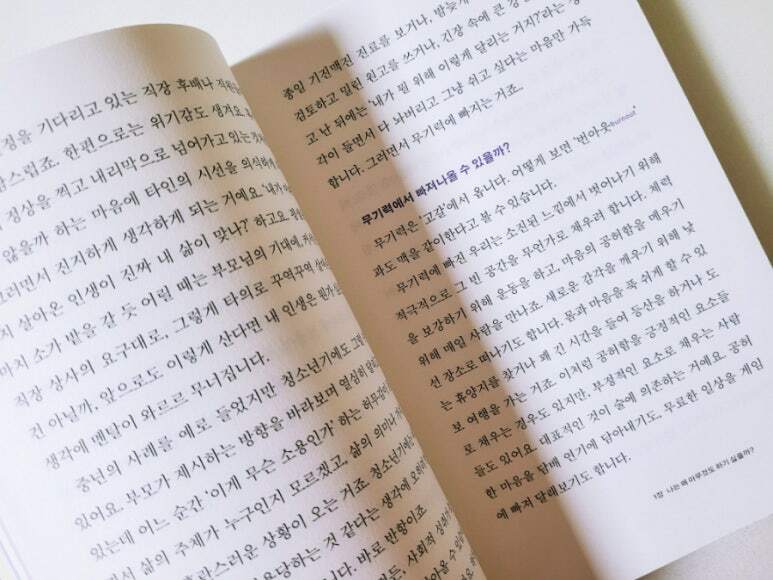 정을 기다리고 있는 직장 후배나 직원
스럽죠. 한편으로는 위기감도 생겨요.
정상을 찍고 내리막으로 넘어가고 있는
않을까 하는 마음에 타인의 시선을 의식하게
그러면서 진지하게 생각하게 되는 거예요. '내가
살아온 인생이 진짜 내 삶이 맞나?' 하고요.
마치 소가 밭을 갈 듯 어릴 때는 부모님의 기대에,
직장 상사의 요구대로, 그렇게 타의로 꾸역꾸역
진 아닐까, 앞으로도 이렇게 산다면 내 인생은
생각에 멘탈이 와르르 무너집니다.
중년의 사례를 예로 들었지만 청소년기에도
있어요. 부모가 제시하는 방향을 바라보며 열심히
있는데 어느 순간 '이게 무슨 소용인가' 하는
서 삶의 주체가 누구인지 모르겠고, 삶의 의미나
혼란스러운 상황이 오는 거죠. 청소년기에는
같다는 생각에
바로 반항이죠
사회적
종일 기진맥진 진료를 보거나, 밤늦게
검토하고 밀린 원고를 쓰거나, 긴장 속에 큰
고 난 뒤에는 '내가 뭘 위해 이렇게 달리는 거지?'라는
각이 들면서 다 놔버리고 그냥 쉬고 싶다는 마음만 가득
합니다. 그러면서 무기력에 빠지는 거죠.
무기력에서 빠져나올 수 있을까?
무기력은 '고갈'에서 옵니다. 어떻게 보면 '번아웃burnout'
과도 맥을 같이한다고 볼 수 있습니다.
무기력에 빠진 우리는 소진된 느낌에서 벗어나기 위해
적극적으로 그 빈 공간을 무언가로 채우려 합니다. 체력
을 보강하기 위해 운동을 하고, 마음의 공허함을 메우기
위해 매일 사람을 만나죠. 새로운 감각을 깨우기 위해 낯
선 장소로 떠나기도 합니다. 몸과 마음을 푹 쉬게 할 수 있
는 휴양지를 찾거나 꽤 긴 시간을 들여 등산을 하거나 도
보 여행을 가는 거죠. 이처럼 공허함을 긍정적인 요소들
로 채우는 경우도 있지만, 부정적인 요소로 채우는 사람
들도 있어요. 대표적인 것이 술에 의존하는 거예요. 공허
한 마음을 담배 연기에 담아내기도, 무료한 일상을 게임
에 빠져 달래보기도 합니다.
1장 나는 왜 아무것도 하기 싫을까?